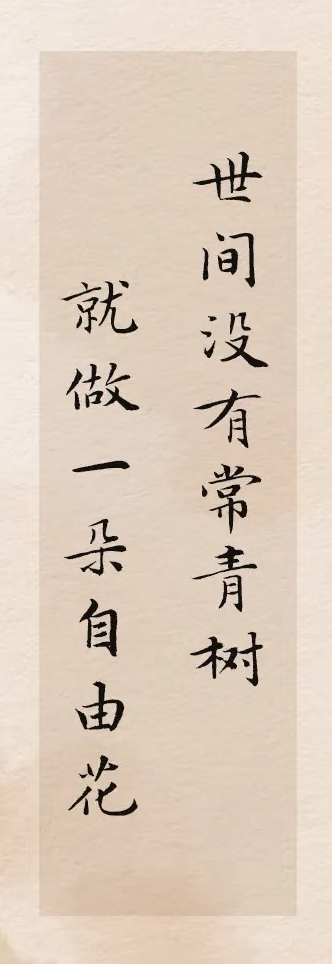 世间没有常青树
就做一朵自由花